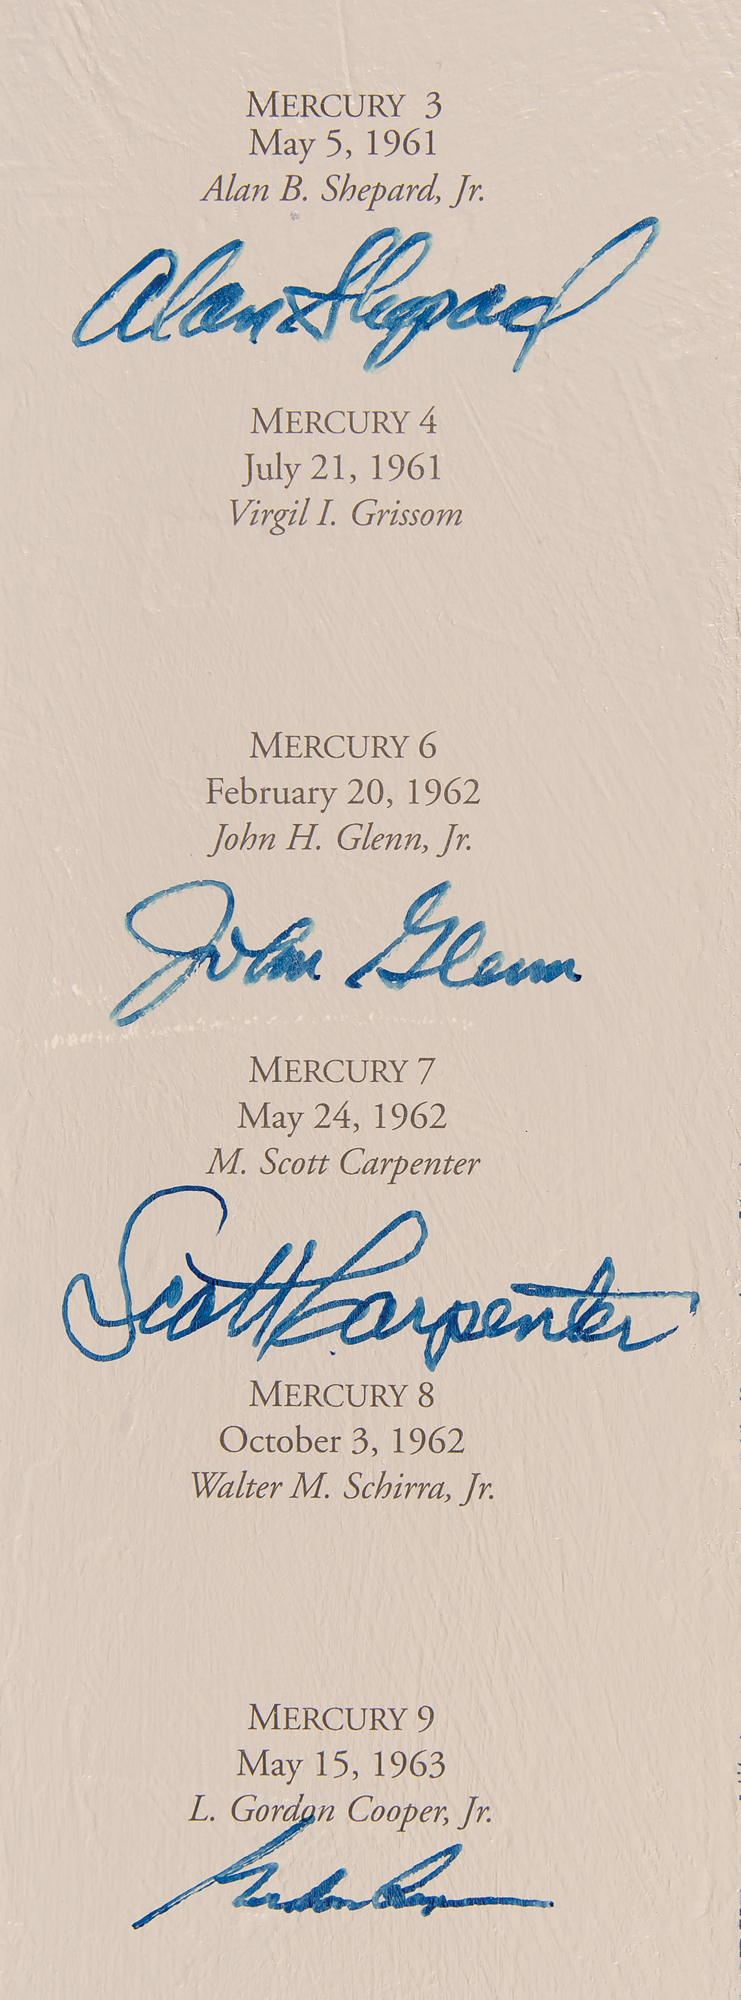 MERCURY 3
May 5, 1961
Alan B. Shepard, Jr.
Alan Shepard
MERCURY 4
July 21, 1961
Virgil I. Grissom
MERCURY 6
February 20, 1962
John H. Glenn, Jr.
John Glenn
MERCURY 7
May 24, 1962
M. Scott Carpenter
Scott Carpenter
MERCURY 8
October 3, 1962
Walter M. Schirra, Jr.
MERCURY 9
May 15, 1963
L. Gordon Cooper, Jr.
Gordon Cooper